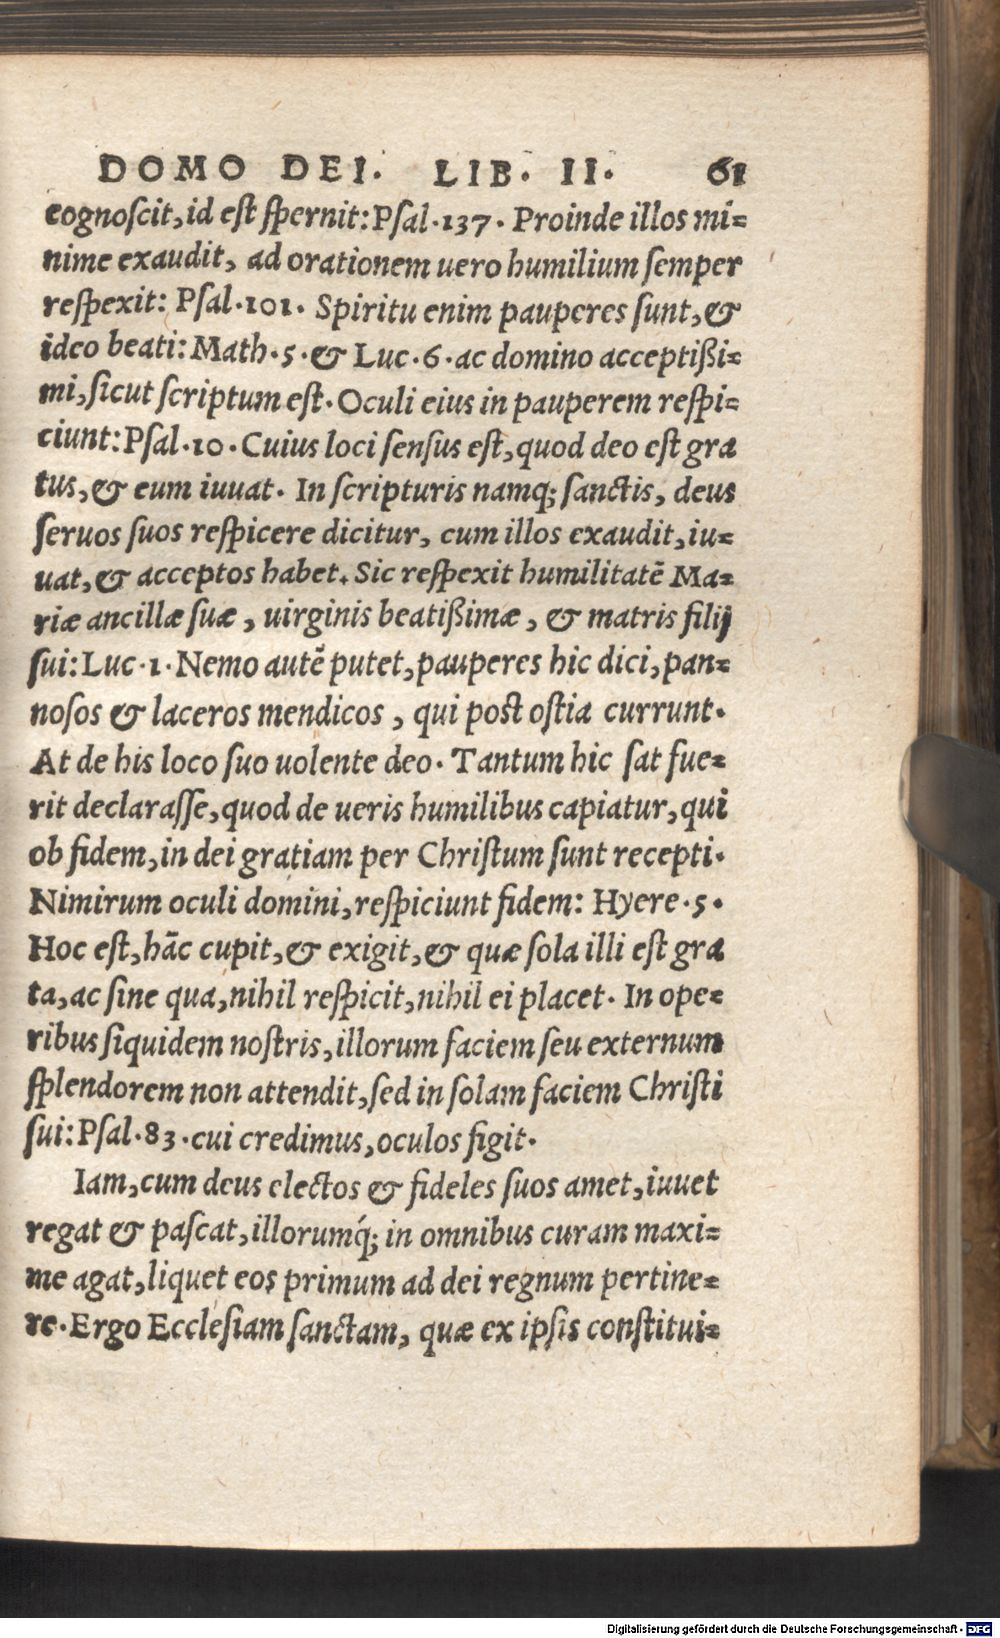 DOMO DEI. LIB. II. 61
cognoscit, id est spernit: Psal. 137. Proinde illos mi-
nime exaudit, ad orationem uero humilium semper
respexit: Psal. 101. Spiritu enim pauperes sunt, &
ideo beati: Math. 5. & Luc. 6. ac domino acceptißi-
mi, sicut scriptum est. Oculi eius in pauperem respi-
ciunt: Psal. 10. Cuius loci sensus est, quod deo est gra
tus, & eum iuuat. In scripturis namq; sanctis, deus
seruos suos respicere dicitur, cum illos exaudit, iu-
uat, & acceptos habet. Sic respexit humilitatē Ma-
riæ ancillæ suæ, uirginis beatißimæ, & matris filij
sui: Luc. 1. Nemo autē putet, pauperes hic dici, pan-
nosos & laceros mendicos, qui post ostia currunt.
At de his loco suo uolente deo. Tantum hic sat fue-
rit declarasse, quod de ueris humilibus capiatur, qui
ob fidem, in dei gratiam per Christum sunt recepti.
Nimirum oculi domini, respiciunt fidem: Hyere. 5.
Hoc est, hāc cupit, & exigit, & quæ sola illi est gra
ta, ac sine qua, nihil respicit, nihil ei placet. In ope-
ribus siquidem nostris, illorum faciem seu externum
splendorem non attendit, sed in solam faciem Christi
sui: Psal. 83. cui credimus, oculos figit.
Iam, cum deus electos & fideles suos amet, iuuet
regat & pascat, illorumq́; in omnibus curam maxi-
me agat, liquet eos primum ad dei regnum pertine-
re. Ergo Ecclesiam sanctam, quæ ex ipsis constitui-
Digitalisierung gefördert durch die Deutsche Forschungsgemeinschaft - DFG